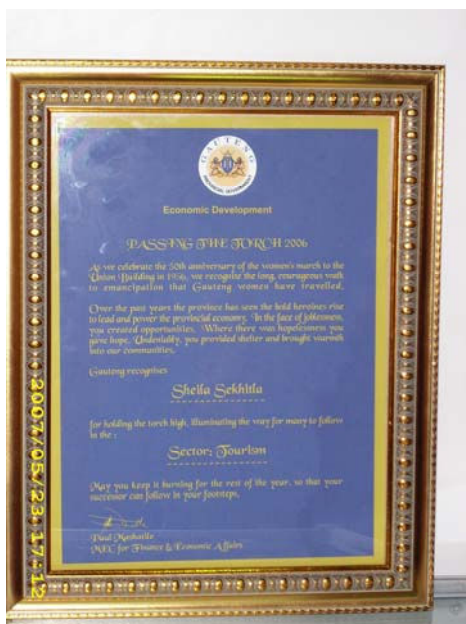 GAUTENG
PROVINCIAL GOVERNMENT
Economic Development
PASSING THE TORCH 2006
As we celebrate the 50th anniversary of the women's march to the
Union Building in 1956, we recognise the long, courageous walk
to emancipation that Gauteng women have travelled.
Over the past years the province has seen the bold heroines rise
to lead and power the provincial economy. In the face of joblessness,
you created opportunities. Where there was hopelessness you
gave hope. Undeniably, you provided shelter and brought warmth
into our communities.
Gauteng recognises
Sheila Sekhitla
for holding the torch high, illuminating the way for many to follow
in the :
Sector: Tourism
May you keep it burning for the rest of the year, so that your
successor can follow in your footsteps.
Paul Mashatile
MEC for Finance & Economic Affairs
2007/05/23 17:12